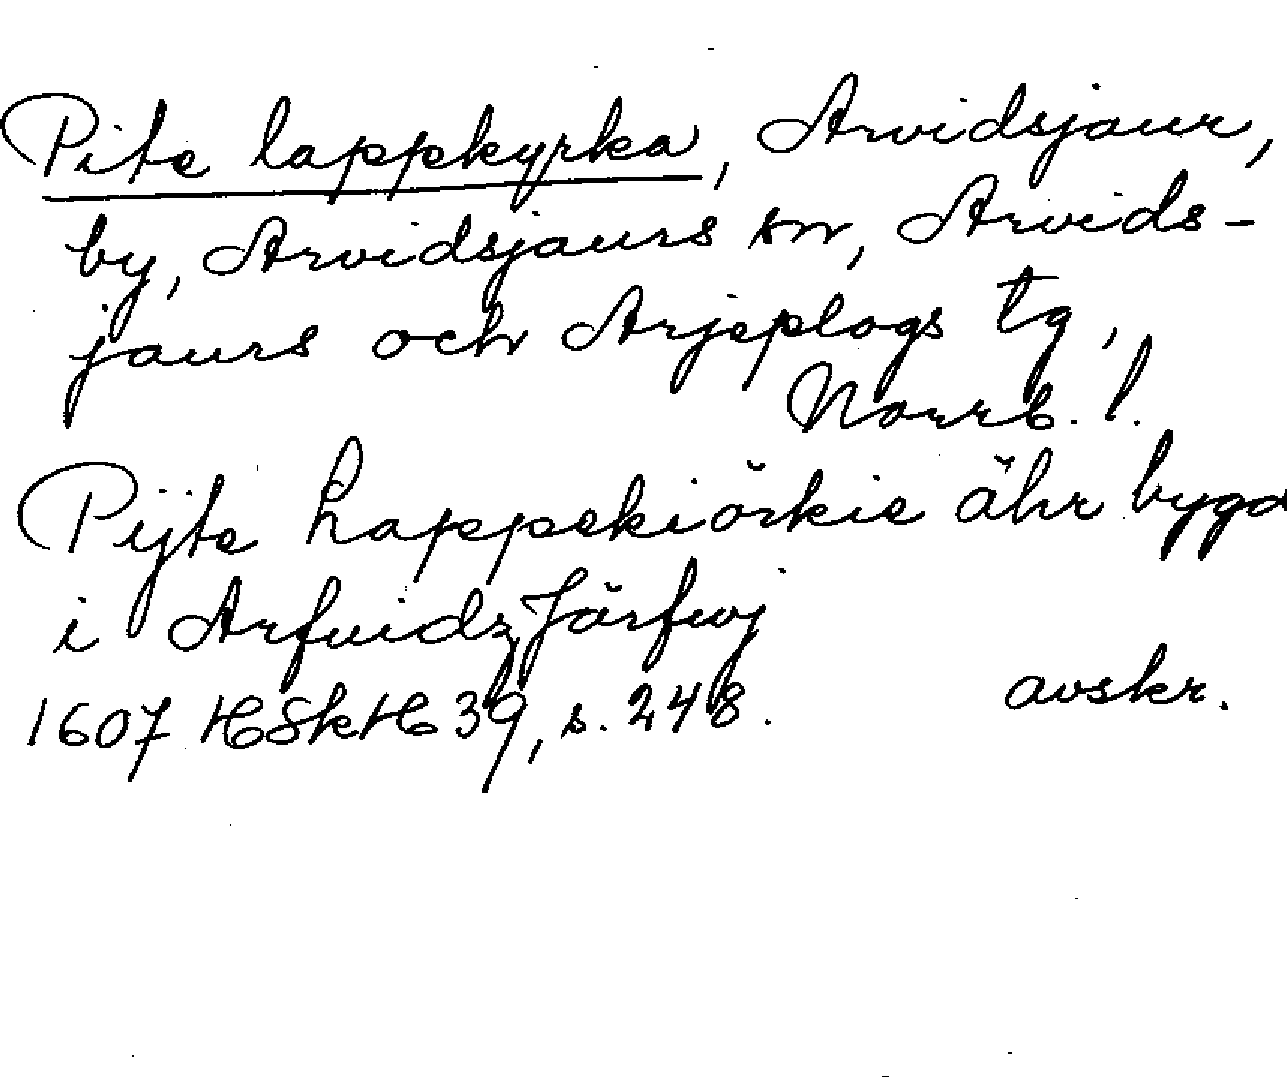 Pite lappkyrka, Arvidsjaur,
by, Arvidsjaurs sn, Arvids-
jaurs och Arjeplogs tg,
Norrb. l.
Pijte Lappekiörkie ähr bygd
i Arfuidz Järfwj
1607 HSkH 39, s. 248. avskr.